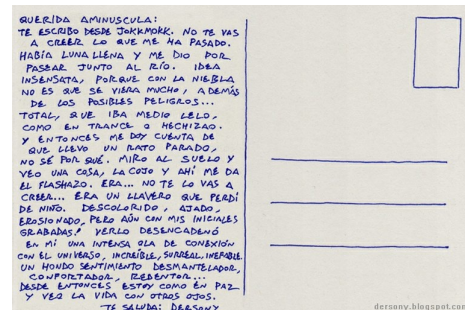 QUERIDA AMINUSCULA:
TE ESCRIBO DESDE JOKKMOKK. NO TE VAS
A CREER LO QUE ME HA PASADO.
HABÍA LUNA LLENA Y ME DIO POR
PASEAR JUNTO AL RÍO. IDEA
INSENSATA, PORQUE CON LA NIEBLA
NO ES QUE SE VIERA MUCHO, ADEMÁS
DE LOS POSIBLES PELIGROS...
TOTAL, QUE IBA MEDIO LELO,
COMO EN TRANCE O HECHIZAO.
Y ENTONCES ME DOY CUENTA DE
QUE LLEVO UN RATO PARADO,
NO SÉ POR QUÉ. MIRO AL SUELO Y
VEO UNA COSA, LA COJO Y AHÍ ME DA
EL FLASHAZO. ERA... NO TE LO VAS A
CREER... ERA UN LLAVERO QUE PERDÍ
DE NIÑO. DESCOLORIDO, AJADO,
EROSIONADO, PERO AÚN CON MIS INICIALES
GRABADAS! VERLO DESENCADENÓ
EN MÍ UNA INTENSA OLA DE CONEXIÓN
CON EL UNIVERSO, INCREÍBLE, SURREAL, INEFABLE.
UN HONDO SENTIMIENTO DESMANTELADOR,
CONFORTADOR, REDENTOR...
DESDE ENTONCES ESTOY COMO EN PAZ
Y VEO LA VIDA CON OTROS OJOS.
TE SALUDA: DERSONY
dersony.blogspot.com